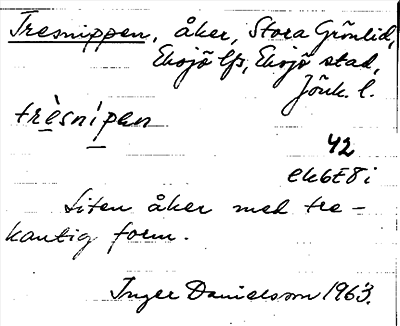 Tresnippen, åker, Stora Grönlid,
Eksjö lfs, Eksjö stad,
Jönk. l.
trèsnípen
42
ek6E8i
Liten åker med tre-
kantig form.
Inger Danielsson 1963.